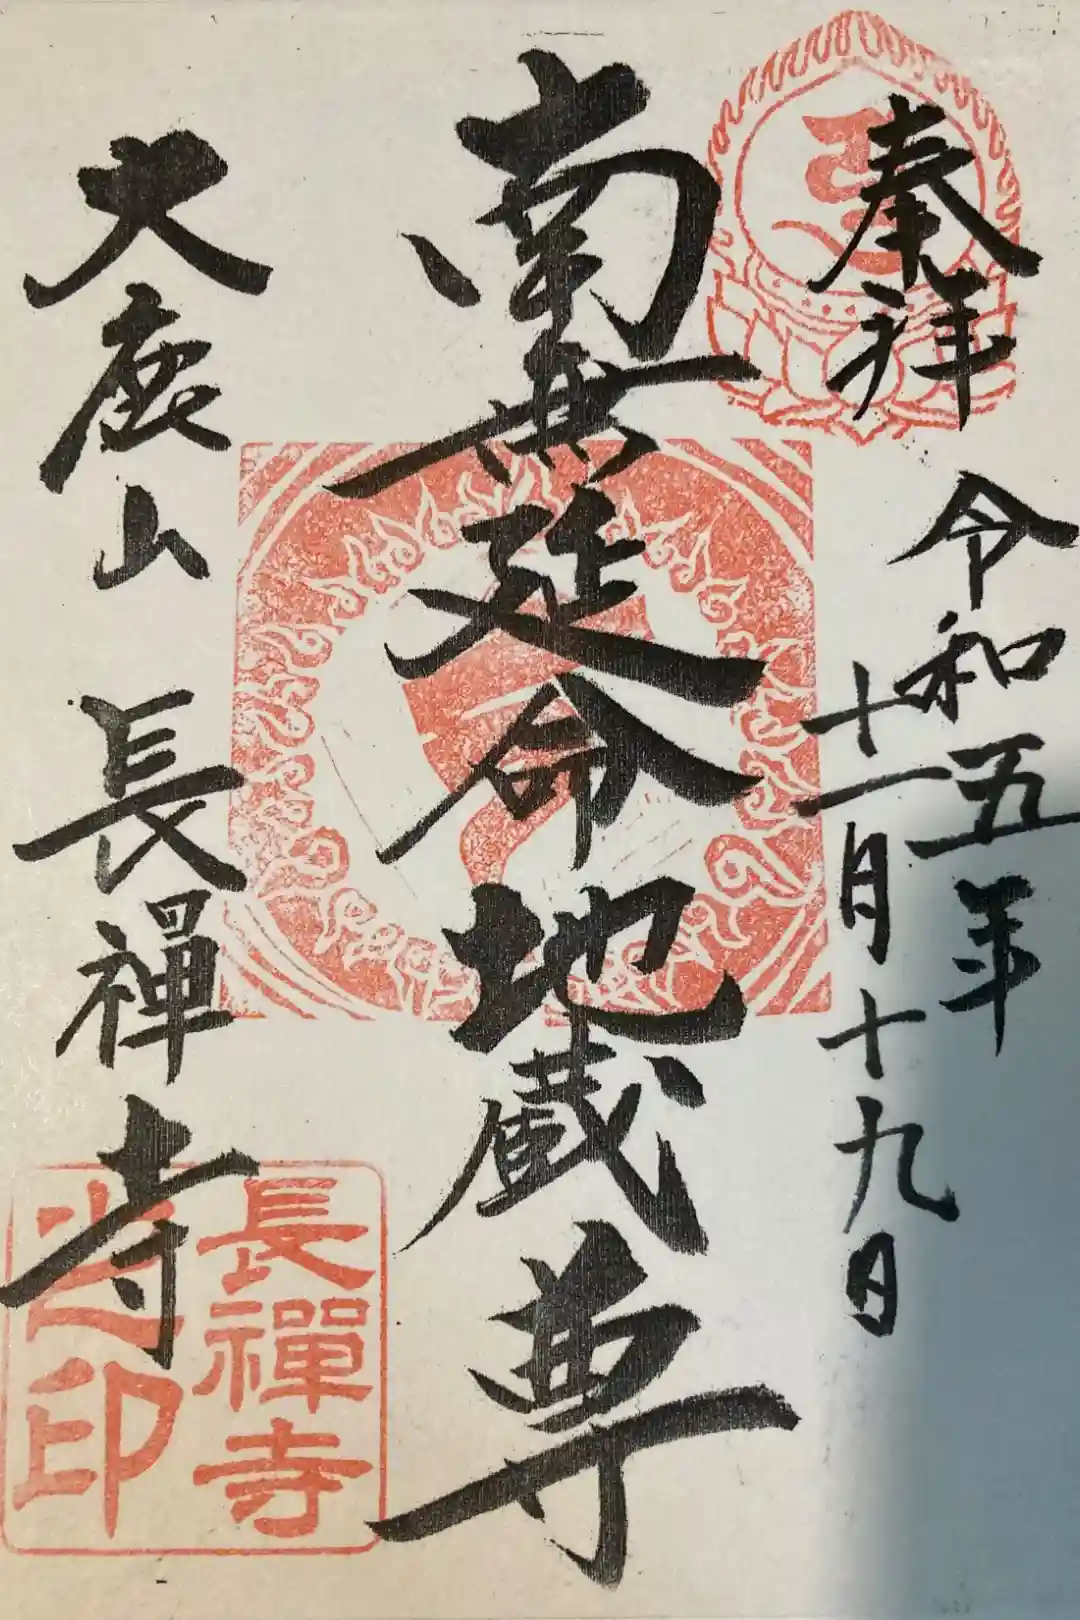 奉拝
令和五年
十一月十九日
南無延命地蔵尊
大鹿山 長禅寺
長禅寺
印